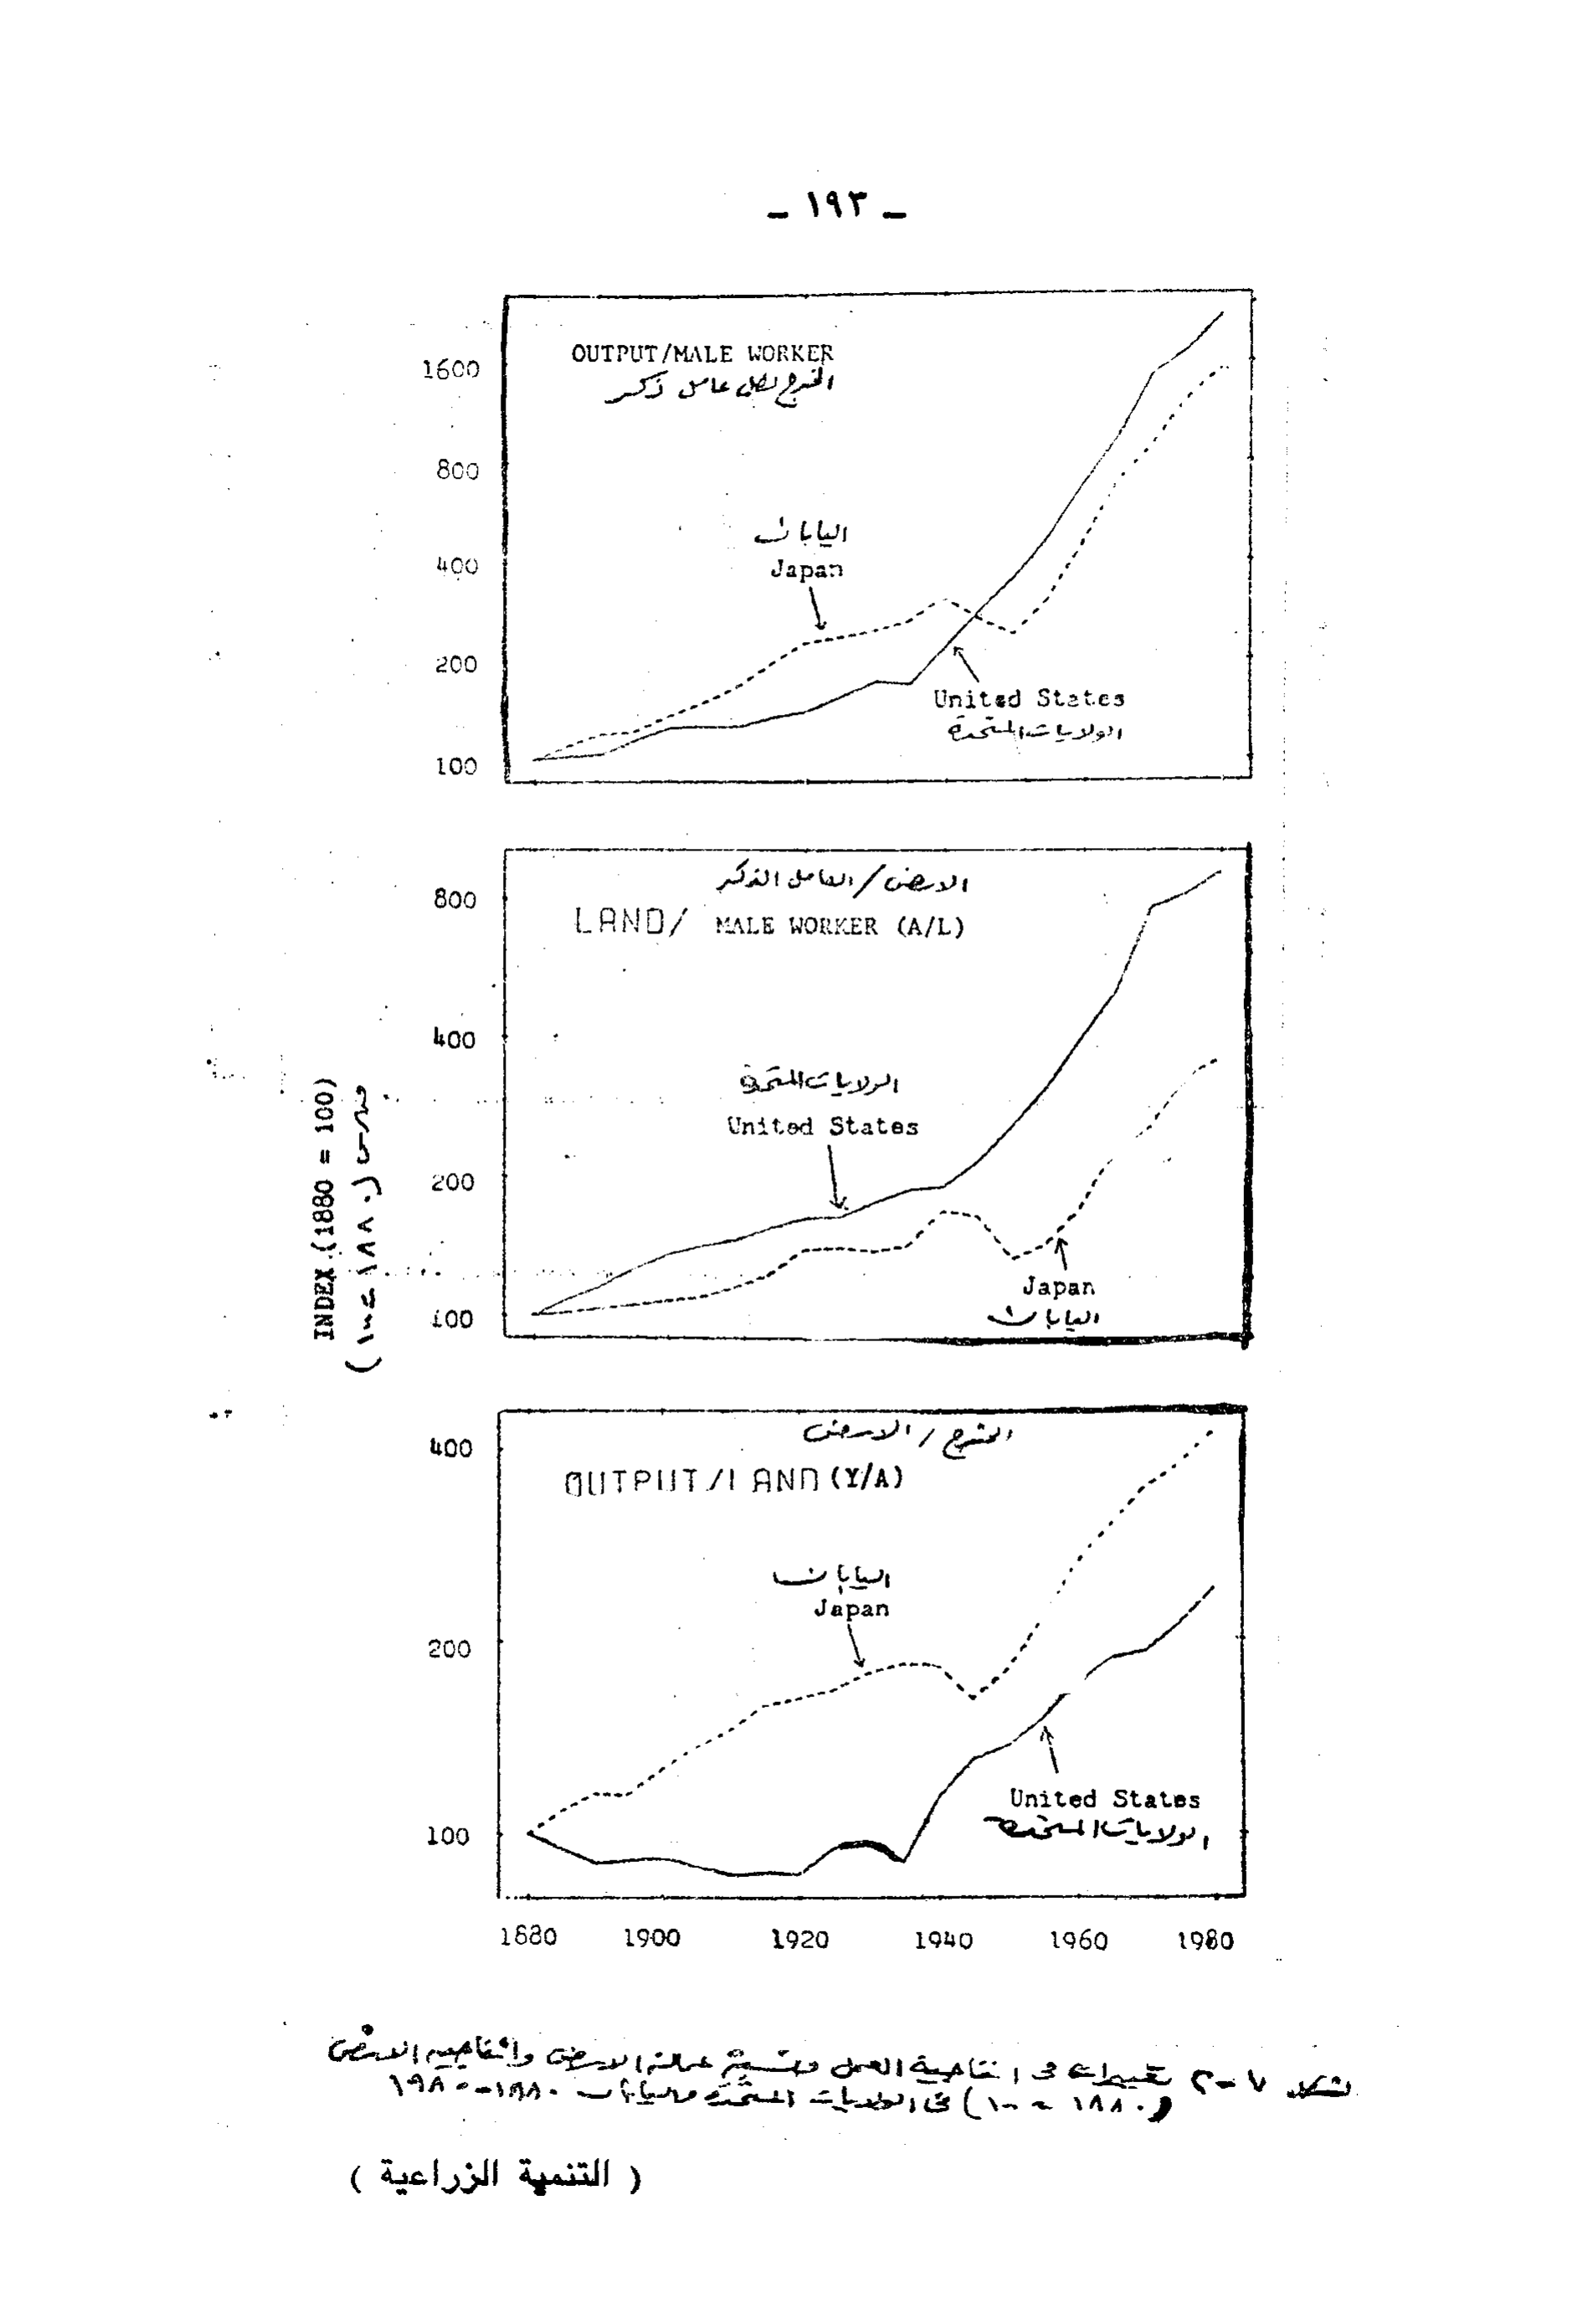 - ١٩٣ -
OUTPUT/MALE WORKER
الخرج لكل عامل ذكر
1600
800
400
200
100
اليابان
Japan
United States
الولايات المتحدة
الارض / العامل الذكر
LAND/ MALE WORKER (A/L)
800
400
200
100
الولايات المتحدة
United States
Japan
اليابان
INDEX (1880 = 100)
المخرج / الارض
OUTPUT/LAND (Y/A)
400
200
100
اليابان
Japan
United States
الولايات المتحدة
1880 1900 1920 1940 1960 1980
شكل ٧-٢ تغييرات فى انتاجية العمل الارض وانتاجية الارض
(١٨٨٠ = ١٠٠) فى الولايات المتحدة واليابان ١٨٨٠-١٩٨٠
( التنمية الزراعية )